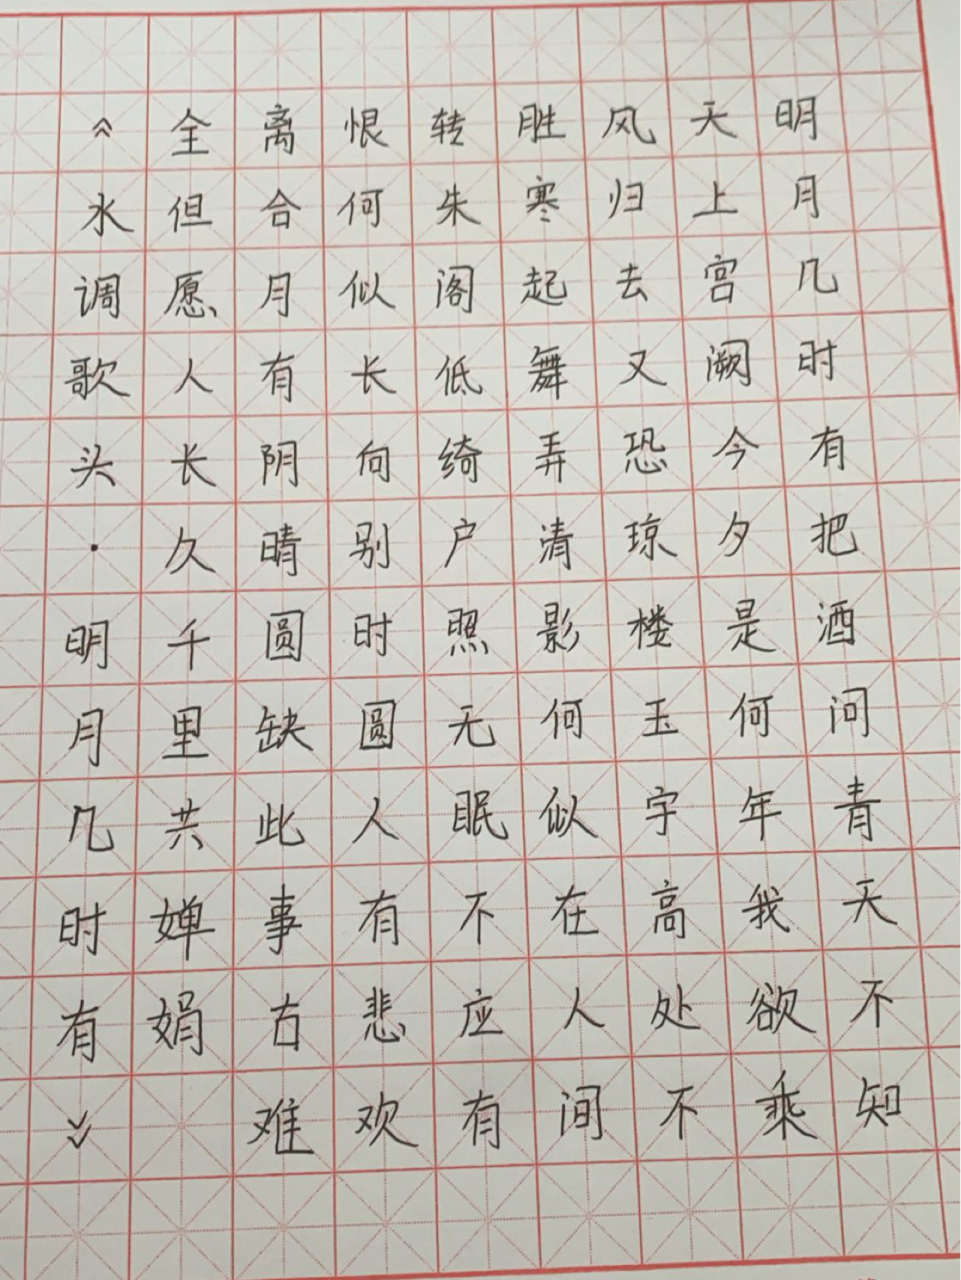 明月几时有把酒问青天不知
天上宫阙今夕是何年我欲乘
风归去又恐琼楼玉宇高处不
胜寒起舞弄清影何似在人间
转朱阁低绮户照无眠不应有
恨何似长向别时圆人有悲欢
离合月有阴晴圆缺此事古难
全但愿人长久千里共婵娟
《水调歌头·明月几时有》